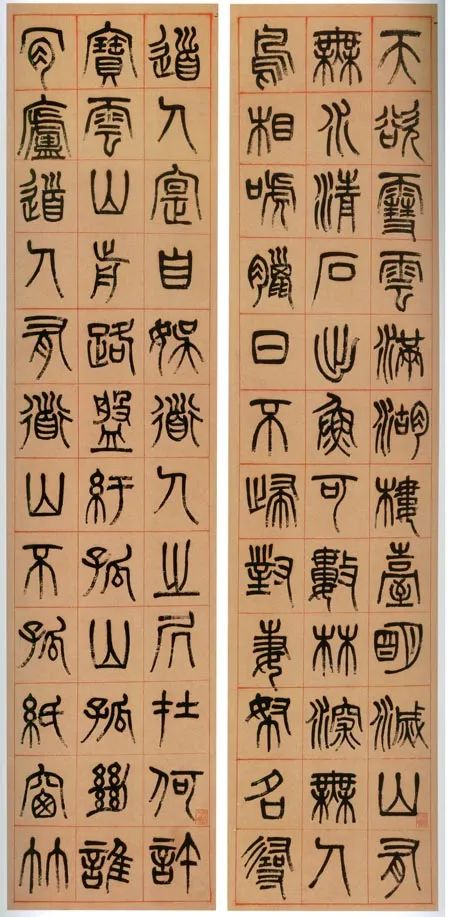 天欲雪雲滿湖樓臺明滅山有
無水清石出魚可數林深無人
鳥相嘑臘日不歸對妻孥名尋
道人寔自娛道人之居在何許
寶雲山前路盤紆孤山孤絕誰
肯廬道人有道山不孤紙窗竹